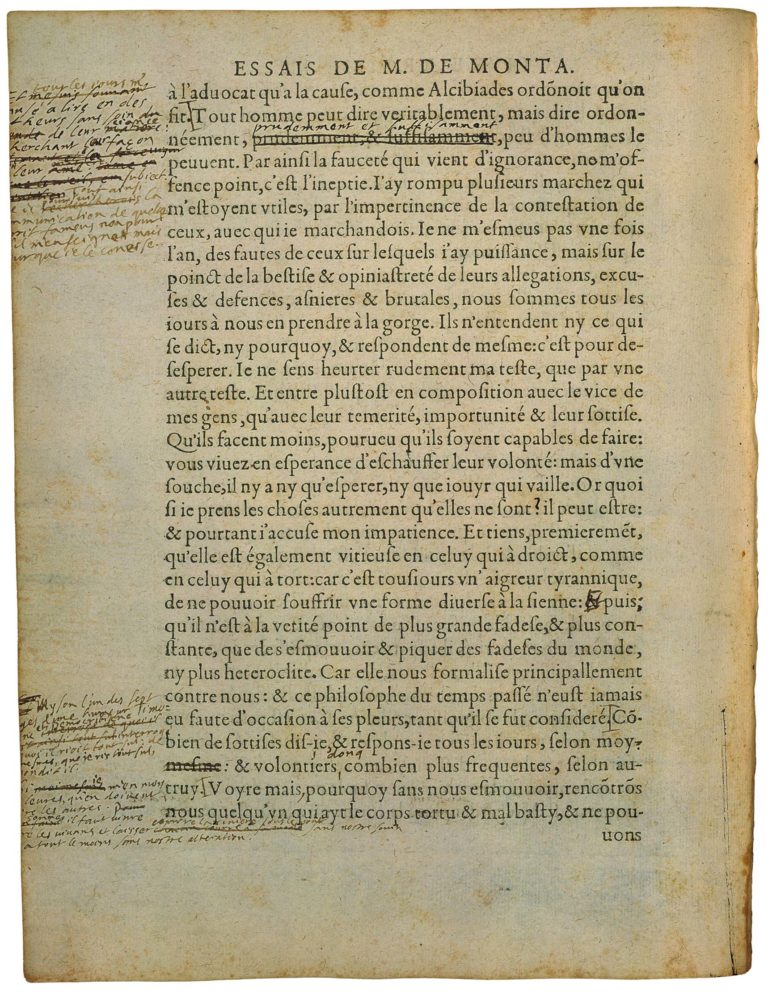 ESSAIS DE M. DE MONTA.
à l'aduocat qu'a la cauſe, comme Alcibiades ordõnoit qu'on
fit. Tout homme peut dire veritablement, mais dire ordon-
prudemment et suffisamment
néement, prudemment, & ſuffiſamment, peu d'hommes le
peuuent. Par ainſi la fauceté qui vient d'ignorance, ne m'of-
fence point, c'eſt l'ineptie. I'ay rompu pluſieurs marchez qui
m'eſtoyent vtiles, par l'impertinence de la conteſtation de
ceux, auec qui ie marchandois. Ie ne m'eſmeus pas vne fois
l'an, des fautes de ceux ſur leſquels i'ay puiſſance, mais ſur le
poinct de la beſtiſe & opiniaſtreté de leurs allegations, excu-
ſes & defences, aſnieres & brutales, nous ſommes tous les
iours à nous en prendre à la gorge. Ils n'entendent ny ce qui
ſe dict, ny pourquoy, & reſpondent de meſme: c'eſt pour de-
ſeſperer. Ie ne sens heurter rudement ma teſte, que par vne
autre teſte. Et entre pluſtoſt en compoſition auec le vice de
mes gens, qu'auec leur temerité, importunité & leur ſottiſe.
Qu'ils facent moins, pourueu qu'ils ſoyent capables de faire:
vous viuez en eſperance d'eſchauffer leur volonté: mais d'vne
ſouche, il n'y a ny qu'eſperer, ny que iouyr qui vaille. Or quoi
ſi ie prens les choſes autrement qu'elles ne ſont? il peut eſtre:
& pourtant i'accuſe mon impatience. Et tiens, premieremẽt,
qu'elle eſt également vitieuse en celuy qui à droict, comme
en celuy qui à tort: car c'eſt touſiours vn' aigreur tyrannique,
de ne pouuoir ſouffrir vne forme diuerſe à la ſienne: & puis,
qu'il n'eſt à la verité point de plus grande fadeſe, & plus con-
ſtante, que de s'eſmouuoir & piquer des fadeſes du monde,
ny plus heteroclite. Car elle nous formaliſe principallement
contre nous: & ce philoſophe du temps paſſé n'euſt iamais
eu faute d'occaſion à ſes pleurs, tant qu'il ſe fut conſideré. Cõ-
bien de ſottiſes dis-ie, & reſpons-ie tous les iours, ſelon moy
donq
meſme: & volontiers, combien plus frequentes, ſelon au-
truy. Voyre mais, pourquoy ſans nous eſmouuoir, rencõtrõs
nous quelqu'vn qui ayt le corps tortu & mal baſty, & ne pou-
uons
tous les jours
sans soin
de leur
cherchant leur façon
subiect
Tout ainsi
la
communication de quelque
esprit fameus non pour
qu'il m'enseigne mais
Myson l'un des sept
m'en moy
les autres.
il faut vivre
les vivans et laisser
sans nostre soin
a tout le moins sans nostre alteration.